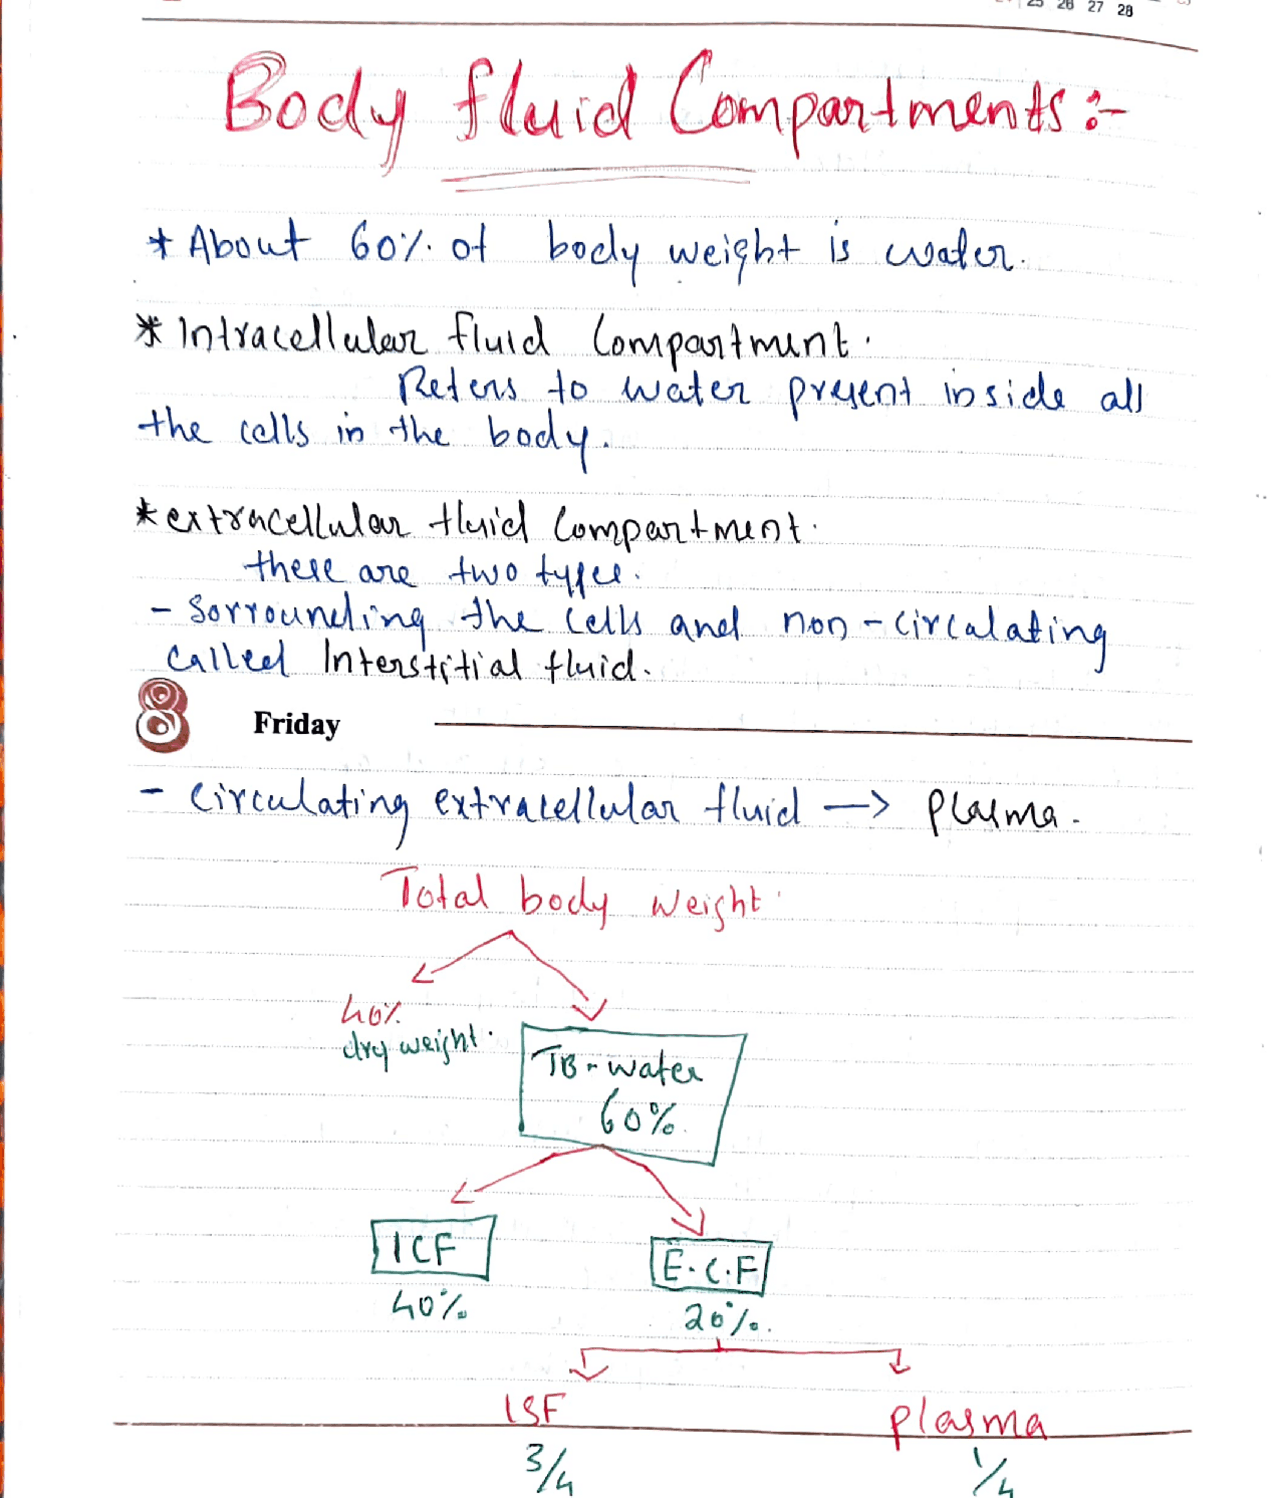 25 26 27 28
Body fluid Compartments :-
* About 60% of body weight is water.
* Intracellular fluid Compartment.
Refers to water present inside all
the cells in the body.
* extracellular fluid Compartment.
these are two types.
- Sorrounding the cells and non-circalating
called Interstitial fluid.
8 Friday
- Circulating extracellular fluid -> plasma.
Total body weight.
40%
dry weight.
TB-water
60%
ICF
40%
E.C.F
20%.
ISF
plasma
3/4
1/4